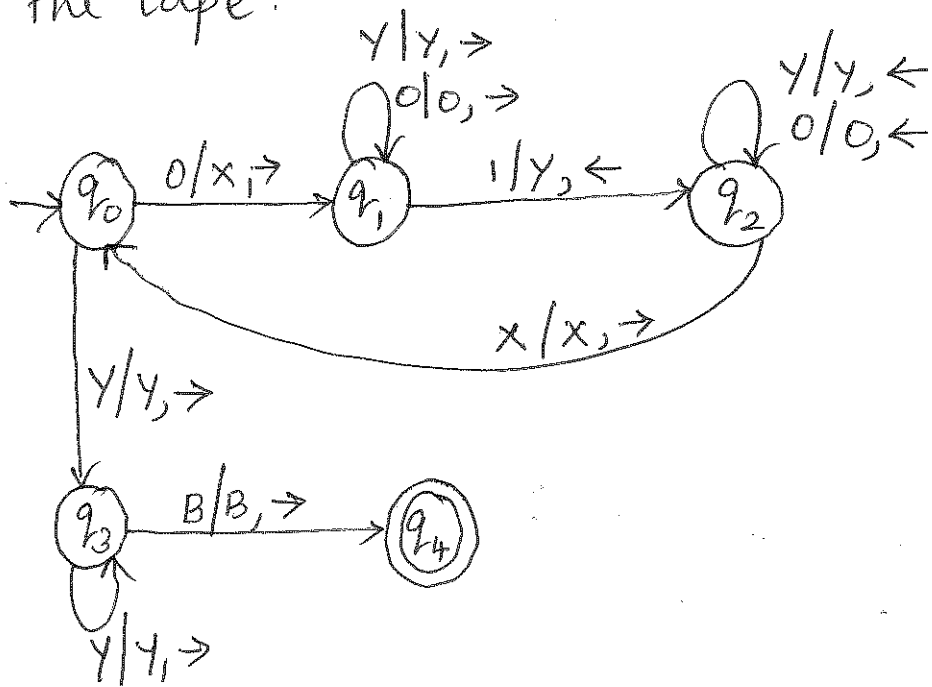 the tape.
Y/Y, →
0/0, →
Y/Y, ←
0/0, ←
q0
0/X, →
q1
1/Y, ←
q2
X/X, →
Y/Y, →
q3
B/B, →
q4
Y/Y, →